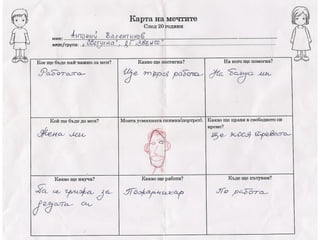 Карта на мечтите
След 20 години
име: Антоний Валентинов
вид/група:
Кое ще бъде най важно за мен?
Какво ще постигна?
На кого ще помогна?
Работата
Ще търся работа
На баща ми
Кой ще бъде до мен?
Моята усмихната снимка/портрет:
Какво ще правя в свободното си
време?
Жена ми
Ще кося тревата
Какво ще науча?
Какво ще работя?
Къде ще пътувам?
Да се грижа за
децата си
Пожарникар
По работа